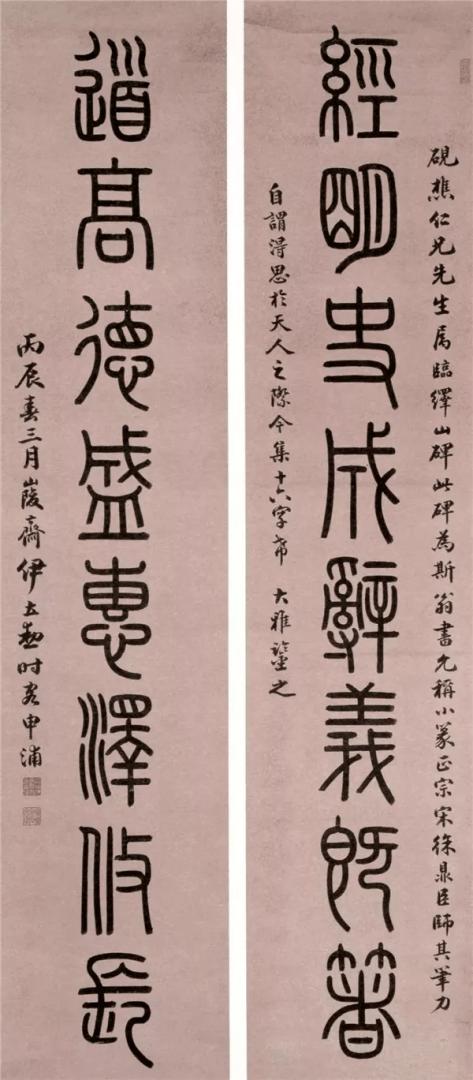 硯樵仁兄先生屬臨繹山碑此碑為斯翁書允稱小篆正宗宋徐鼎臣師其筆力
經明史成辭義既箸
自謂得思於天人之際今集十六字希 大雅鑒之
道高德盛惠澤攸長
丙辰春三月峻齋伊立勳時客申浦